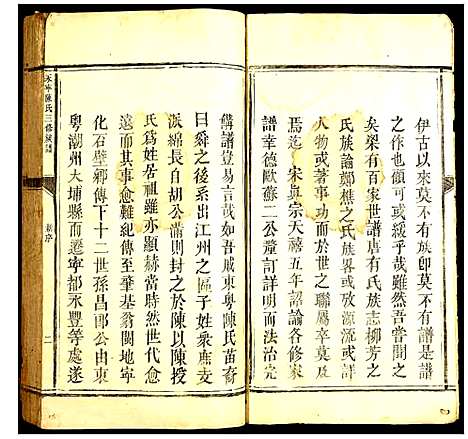 伊古以來莫不有族即莫不有譜是譜
之作也又可緩乎哉雖然吾嘗聞之
矣梁有百家世譜唐有氏族志柳芳之
氏族論鄭樵之氏族畧或攷源流或詳
人物或著事功而於世之聯屬莘莫及
焉迄 宋真宗天禧五年詔諭各修家
譜幸德歐蘇二公釐訂詳明而法治完
備譜豈易言哉如吾戚東粤陳氏苗裔
曰舜之後系出江州之區子姓衆庶支
派綿長自胡公滿則封之於陳以陳授
氏爲姓居祖雖亦顯赫當時然世代愈
遠而其事愈難紀傳今基翁閩地寧
化石壁鄉傳下十二世孫昌郎公由東
粤潮州大埔縣而遷寧都永豐等處遂
永寧陳氏三修族譜
新序
二